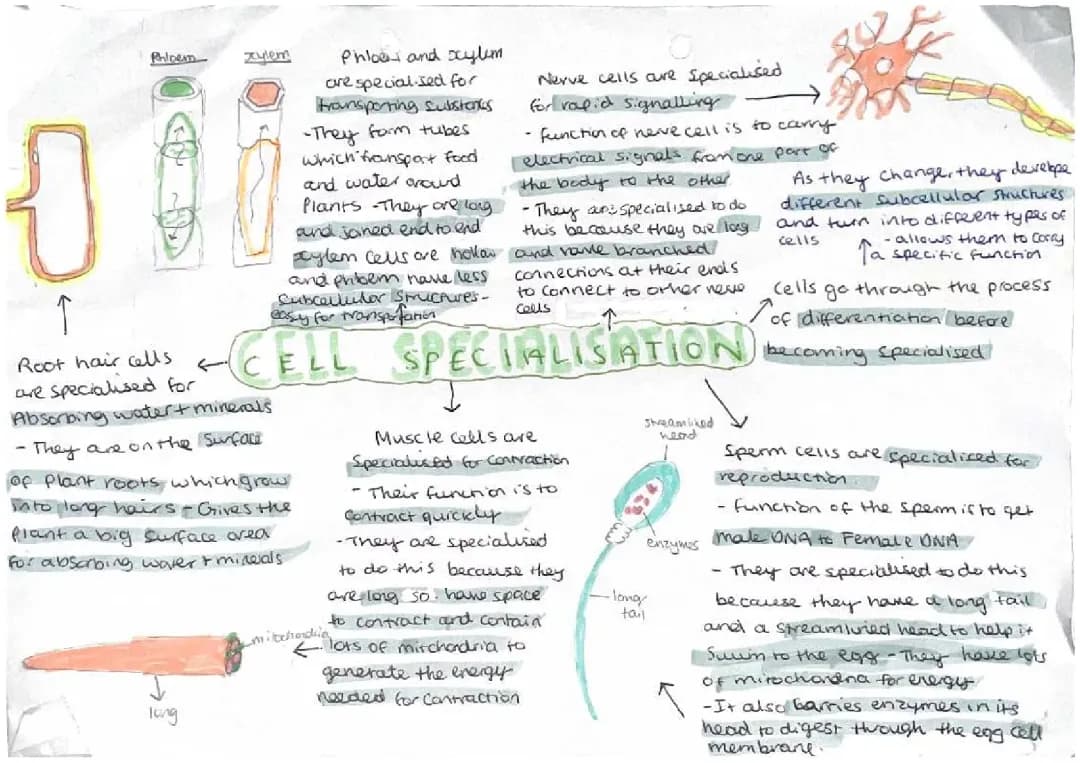 Phloem
xylem
Phloem and xylem
are specialised for
transporting substances
- They form tubes
which transport food
and water around
Plants - They are long
and joined end to end
xylem cells are hollow
and phloem have less
Subcellular Structures -
easy for transportation
Nerve cells are Specialised
for rapid signalling
- function of nerve cell is to carry
electrical signals from one part of
the body to the other
- They are specialised to do
this because they are long
and have branched
connections at their ends
to connect to other nerve
cells
As they change, they develope
different subcellular structures
and turn into different types of
cells
- allows them to carry
a specific function
Cells go through the process
of differentiation before
becoming specialised
CELL SPECIALISATION
Root hair cells
are specialised for
Absorbing water + minerals
- They are on the surface
of plant roots which grow
into long hairs - Gives the
plant a big surface area
for absorbing water + minerals
mitochondria
long
Muscle cells are
Specialised for contraction
- Their function is to
contract quickly
- They are specialised
to do this because they
are long so have space
to contract and contain
lots of mitchondria to
generate the energy
needed for contraction
streamlined
head
enzymes
long
tail
Sperm cells are specialised for
reproduction.
- function of the sperm is to get
male DNA to Female DNA
- They are specialised to do this
because they have a long tail
and a streamlined head to help it
swim to the egg - They have lots
of mitochondria for energy
- It also barries enzymes in its
head to digest through the egg cell
membrane.